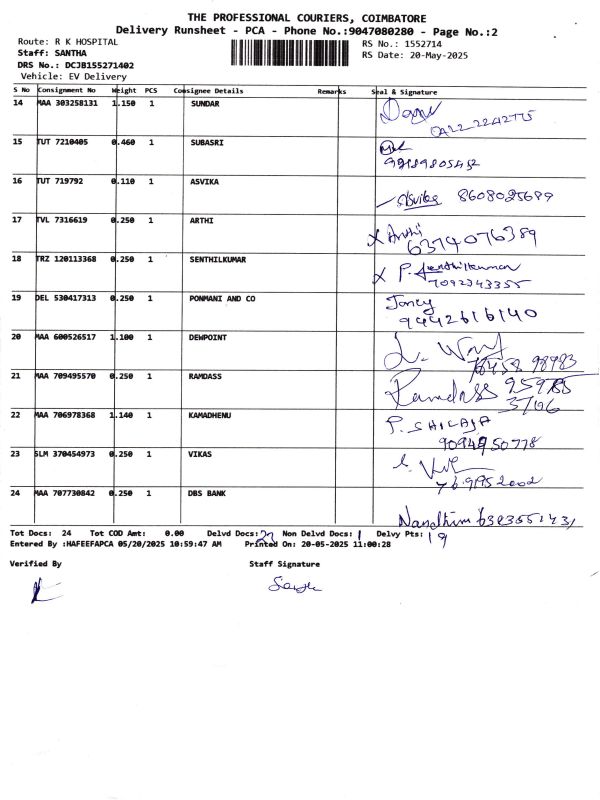 THE PROFESSIONAL COURIERS, COIMBATORE
Delivery Runsheet - PCA - Phone No.:9047080280 - Page No.:2
Route: R K HOSPITAL
RS No.: 1552714
Staff: SANTHA
RS Date: 20-May-2025
DRS No.: DCJB155271402
Vehicle: EV Delivery
S No Consignment No Weight PCS Consignee Details Remarks Seal & Signature
14 MAA 303258131 1.150 1 SUNDAR
15 TUT 7210405 0.460 1 SUBASRI
16 TUT 719792 0.110 1 ASVIKA
8608025699
17 TVL 7316619 0.250 1 ARTHI Arthi
6374076389
18 TRZ 120113368 0.250 1 SENTHILKUMAR P. Senthilkumar
7092343355
19 DEL 530417313 0.250 1 PONMANI AND CO
9442616140
20 MAA 600526517 1.100 1 DEWPOINT
21 MAA 709495570 0.250 1 RAMDASS Ramdass
22 MAA 706978368 1.140 1 KAMADHENU P. SHILAJA
9094950778
23 SLM 370454973 0.250 1 VIKAS
24 MAA 707730842 0.250 1 DBS BANK
Tot Docs: 24 Tot COD Amt: 0.00 Delvd Docs: Non Delvd Docs: 1 Delvy Pts: 19
Entered By :HAFEEFAPCA 05/20/2025 10:59:47 AM Printed On: 20-05-2025 11:00:28
Verified By Staff Signature